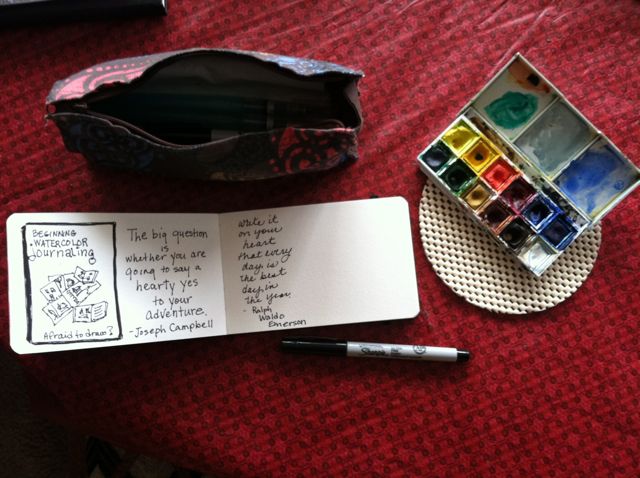 BEGINNING
WATERCOLOR
Journaling
Afraid to draw?
The big question
is
whether you are
going to say a
hearty yes
to your
adventure.
-Joseph Campbell
write it
on your
heart
that every
day is
the best
day in
the year.
- Ralph
Waldo
Emerson